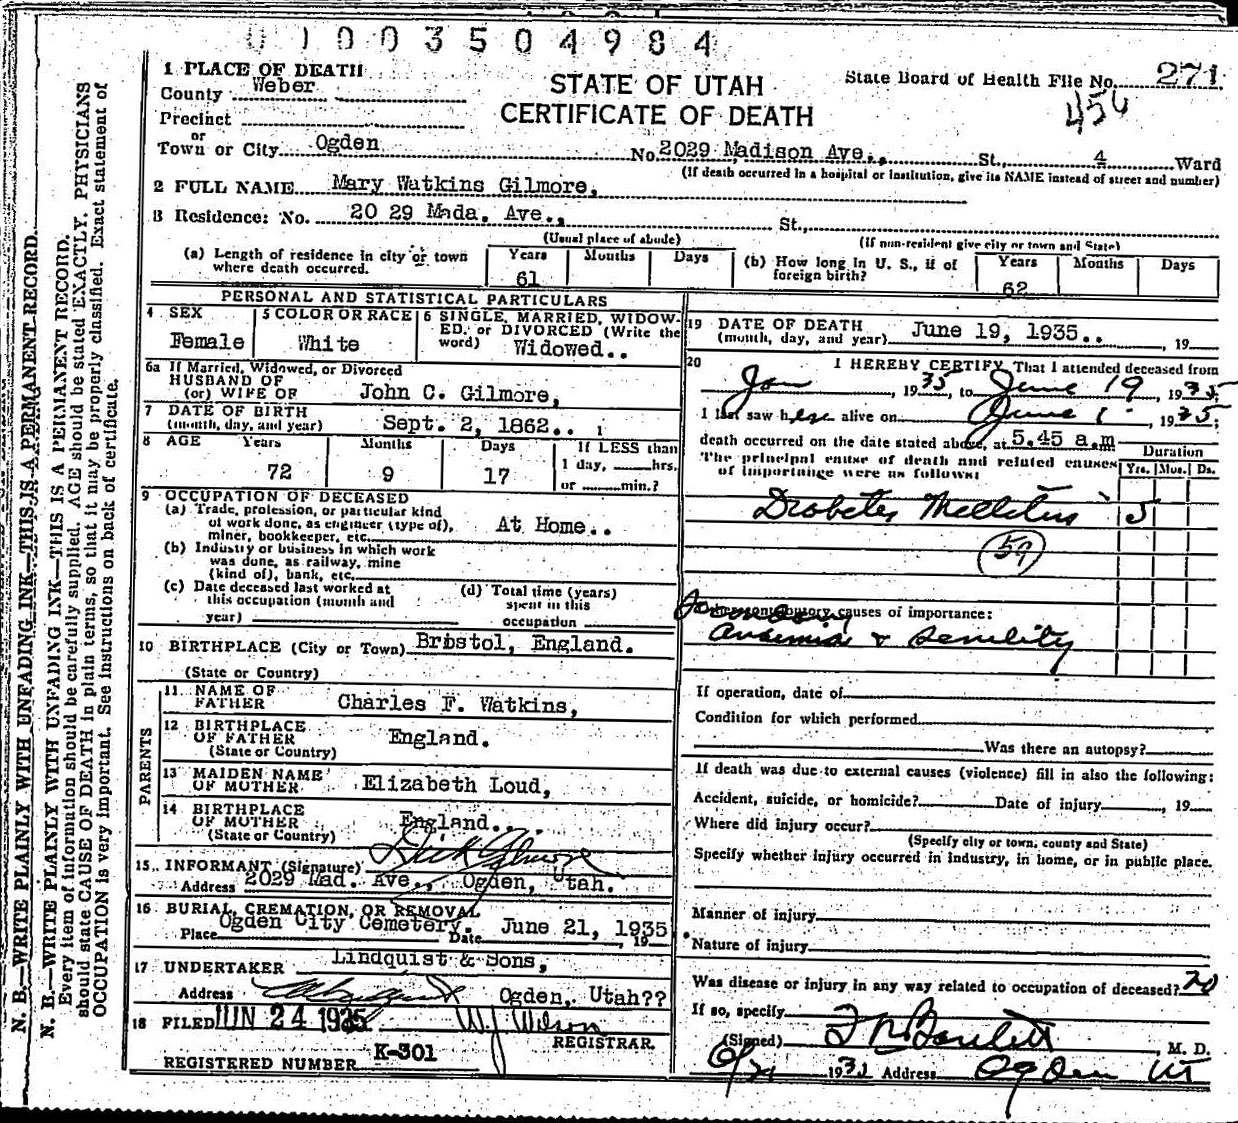 0 1 0 0 3 5 0 4 9 8 4
1 PLACE OF DEATH
County Weber
Precinct
or
Town or City Ogden
STATE OF UTAH
CERTIFICATE OF DEATH
State Board of Health File No. 271
456
No. 2029 Madison Ave., St., 4 Ward
(If death occurred in a hospital or institution, give its NAME instead of street and number)
2 FULL NAME Mary Watkins Gilmore,
3 Residence: No. 20 29 Mada. Ave., St.,
(Usual place of abode) (If non-resident give city or town and State)
(a) Length of residence in city or town where death occurred. Years 61 Months Days
(b) How long in U. S., if of foreign birth? Years 62 Months Days
PERSONAL AND STATISTICAL PARTICULARS
4 SEX Female
5 COLOR OR RACE White
6 SINGLE, MARRIED, WIDOWED, or DIVORCED (Write the word) Widowed..
6a If Married, Widowed, or Divorced
HUSBAND OF
(or) WIFE OF John C. Gilmore,
7 DATE OF BIRTH
(month, day, and year) Sept. 2, 1862..
8 AGE Years 72 Months 9 Days 17 If LESS than 1 day, hrs. or min.?
9 OCCUPATION OF DECEASED
(a) Trade, profession, or particular kind
of work done, as engineer (type of), At Home..
miner, bookkeeper, etc.
(b) Industry or business in which work
was done, as railway, mine
(kind of), bank, etc.
(c) Date deceased last worked at
this occupation (month and
year)
(d) Total time (years)
spent in this
occupation
10 BIRTHPLACE (City or Town) Bristol, England.
(State or Country)
PARENTS
11 NAME OF
FATHER Charles F. Watkins,
12 BIRTHPLACE
OF FATHER England.
(State or Country)
13 MAIDEN NAME
OF MOTHER Elizabeth Loud,
14 BIRTHPLACE
OF MOTHER England...
(State or Country)
15 INFORMANT (Signature) Dick Gilmore
Address 2029 Mad. Ave., Ogden, Utah.
16 BURIAL, CREMATION, OR REMOVAL
Place Ogden City Cemetery. Date June 21, 1935, 19
17 UNDERTAKER Lindquist & Sons,
Address Ogden, Utah??
18 FILED JUN 24 1935 W. J. Wilson
REGISTRAR.
REGISTERED NUMBER K-301
19 DATE OF DEATH
(month, day, and year) June 19, 1935.., 19
20 I HEREBY CERTIFY That I attended deceased from
Jan, 1935, to June 19, 1935;
I last saw her alive on June 1, 1935;
death occurred on the date stated above, at 5.45 a.m
The principal cause of death and related causes
of importance were as follows:
Duration
Yrs. Mos. Ds.
Diabetes Mellitus 5
59
contributory causes of importance:
Anaemia & Senility
If operation, date of
Condition for which performed
Was there an autopsy?
If death was due to external causes (violence) fill in also the following:
Accident, suicide, or homicide? Date of injury, 19
Where did injury occur?
(Specify city or town, county and State)
Specify whether injury occurred in industry, in home, or in public place.
Manner of injury
Nature of injury
Was disease or injury in any way related to occupation of deceased? no
If so, specify
(Signed) Bartlett, M. D.
6/21 193 Address Ogden Ut
N. B.—WRITE PLAINLY WITH UNFADING INK—THIS IS A PERMANENT RECORD.
N. B.—WRITE PLAINLY WITH UNFADING INK—THIS IS A PERMANENT RECORD.
Every item of information should be carefully supplied. AGE should be stated EXACTLY. PHYSICIANS
should state CAUSE OF DEATH in plain terms, so that it may be properly classified. Exact statement of
OCCUPATION is very important. See instructions on back of certificate.